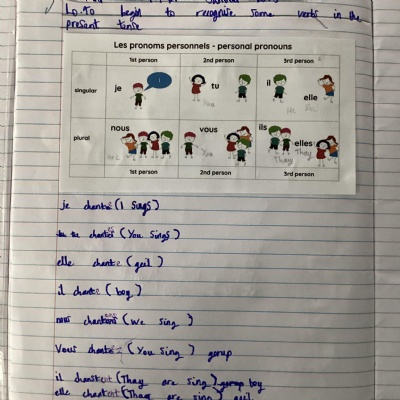 L.O. To begin to recognise some verbs in the
present tense
Les pronoms personnels - personal pronouns
1st person 2nd person 3rd person
singular je I tu You il He elle
plural nous We vous You ils Thay elles Thay
1st person 2nd person 3rd person
je chante (I sings)
tu chantes (You sings)
elle chante (geil)
il chante (boy)
nous chantons (We sing)
Vous (You sing) gorup
il chantent (Thay are sing) boy
elle chantent (Thay are sing) geil